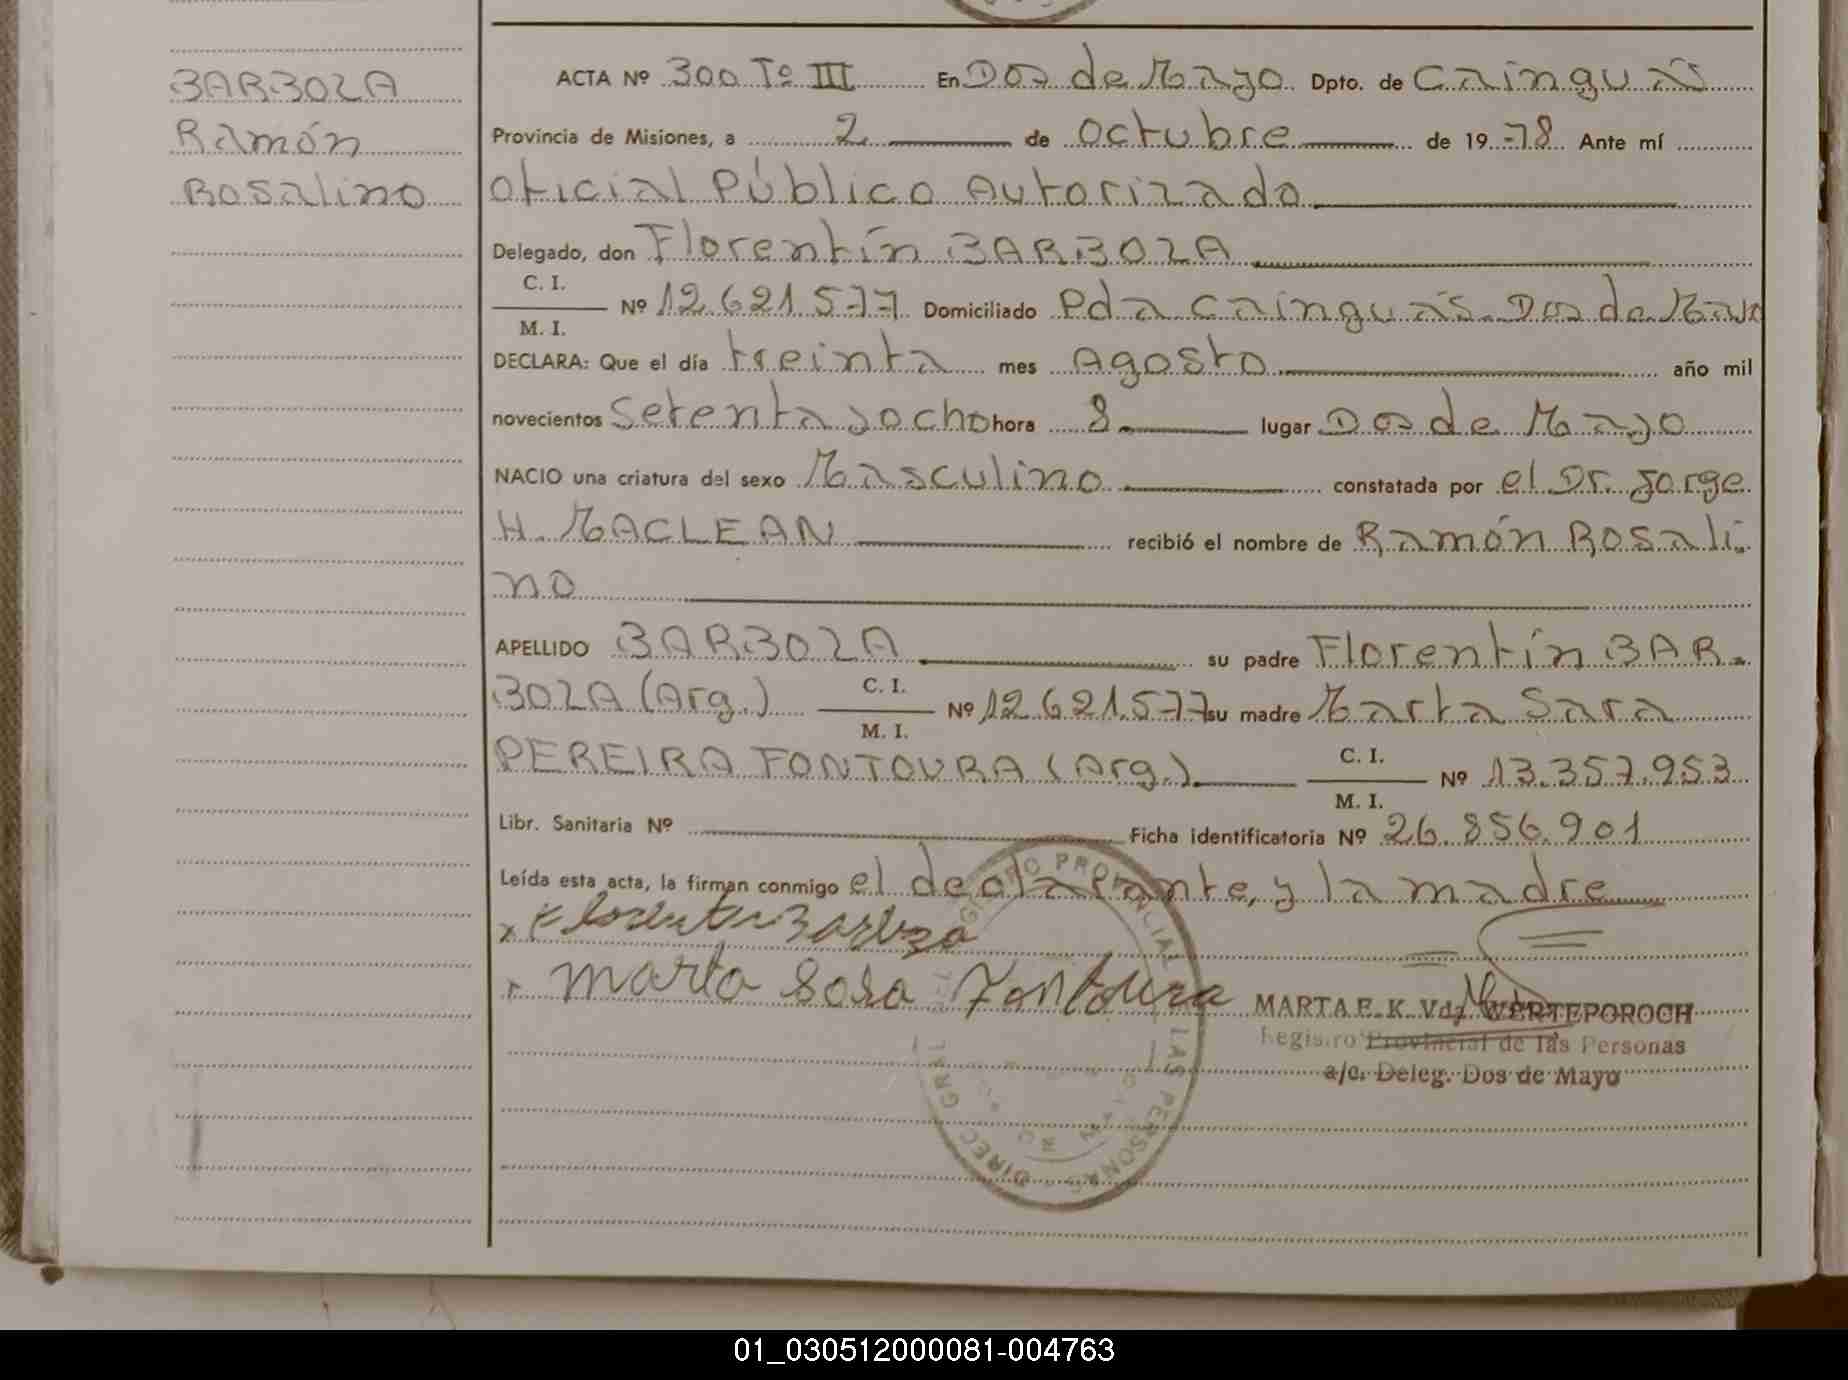 BARBOZA
Ramón
Rosalino
ACTA Nº 300 Tº III En Dos de Mayo Dpto. de Cainguás
Provincia de Misiones, a 2 de Octubre de 19 78 Ante mí
Oficial Público Autorizado
Delegado, don Florentín BARBOZA
C. I.
M. I.
Nº 12.621.577 Domiciliado Pda Cainguás. Dos de Mayo
DECLARA: Que el día treinta mes Agosto año mil
novecientos Setenta y ocho hora 8 lugar Dos de Mayo
NACIO una criatura del sexo Masculino constatada por el Dr. Jorge
H. MACLEAN recibió el nombre de Ramón Rosali-
no
APELLIDO BARBOZA su padre Florentín BAR-
BOZA (Arg.) C. I. M. I. Nº 12.621.577 su madre Marta Sara
PEREIRA FONTOURA (Arg.) C. I. M. I. Nº 13.357.953
Libr. Sanitaria Nº Ficha identificatoria Nº 26.856.901
Leída esta acta, la firman conmigo el declarante, y la madre
x Florentin Barboza
Marta Sara Fontoura
MARTA E. K. Vda WERTEPOROCH
Registro Provincial de las Personas
a/c. Deleg. Dos de Mayo
REGISTRO PROVINCIAL
DE LAS PERSONAS
DIREC GRAL
01_030512000081-004763